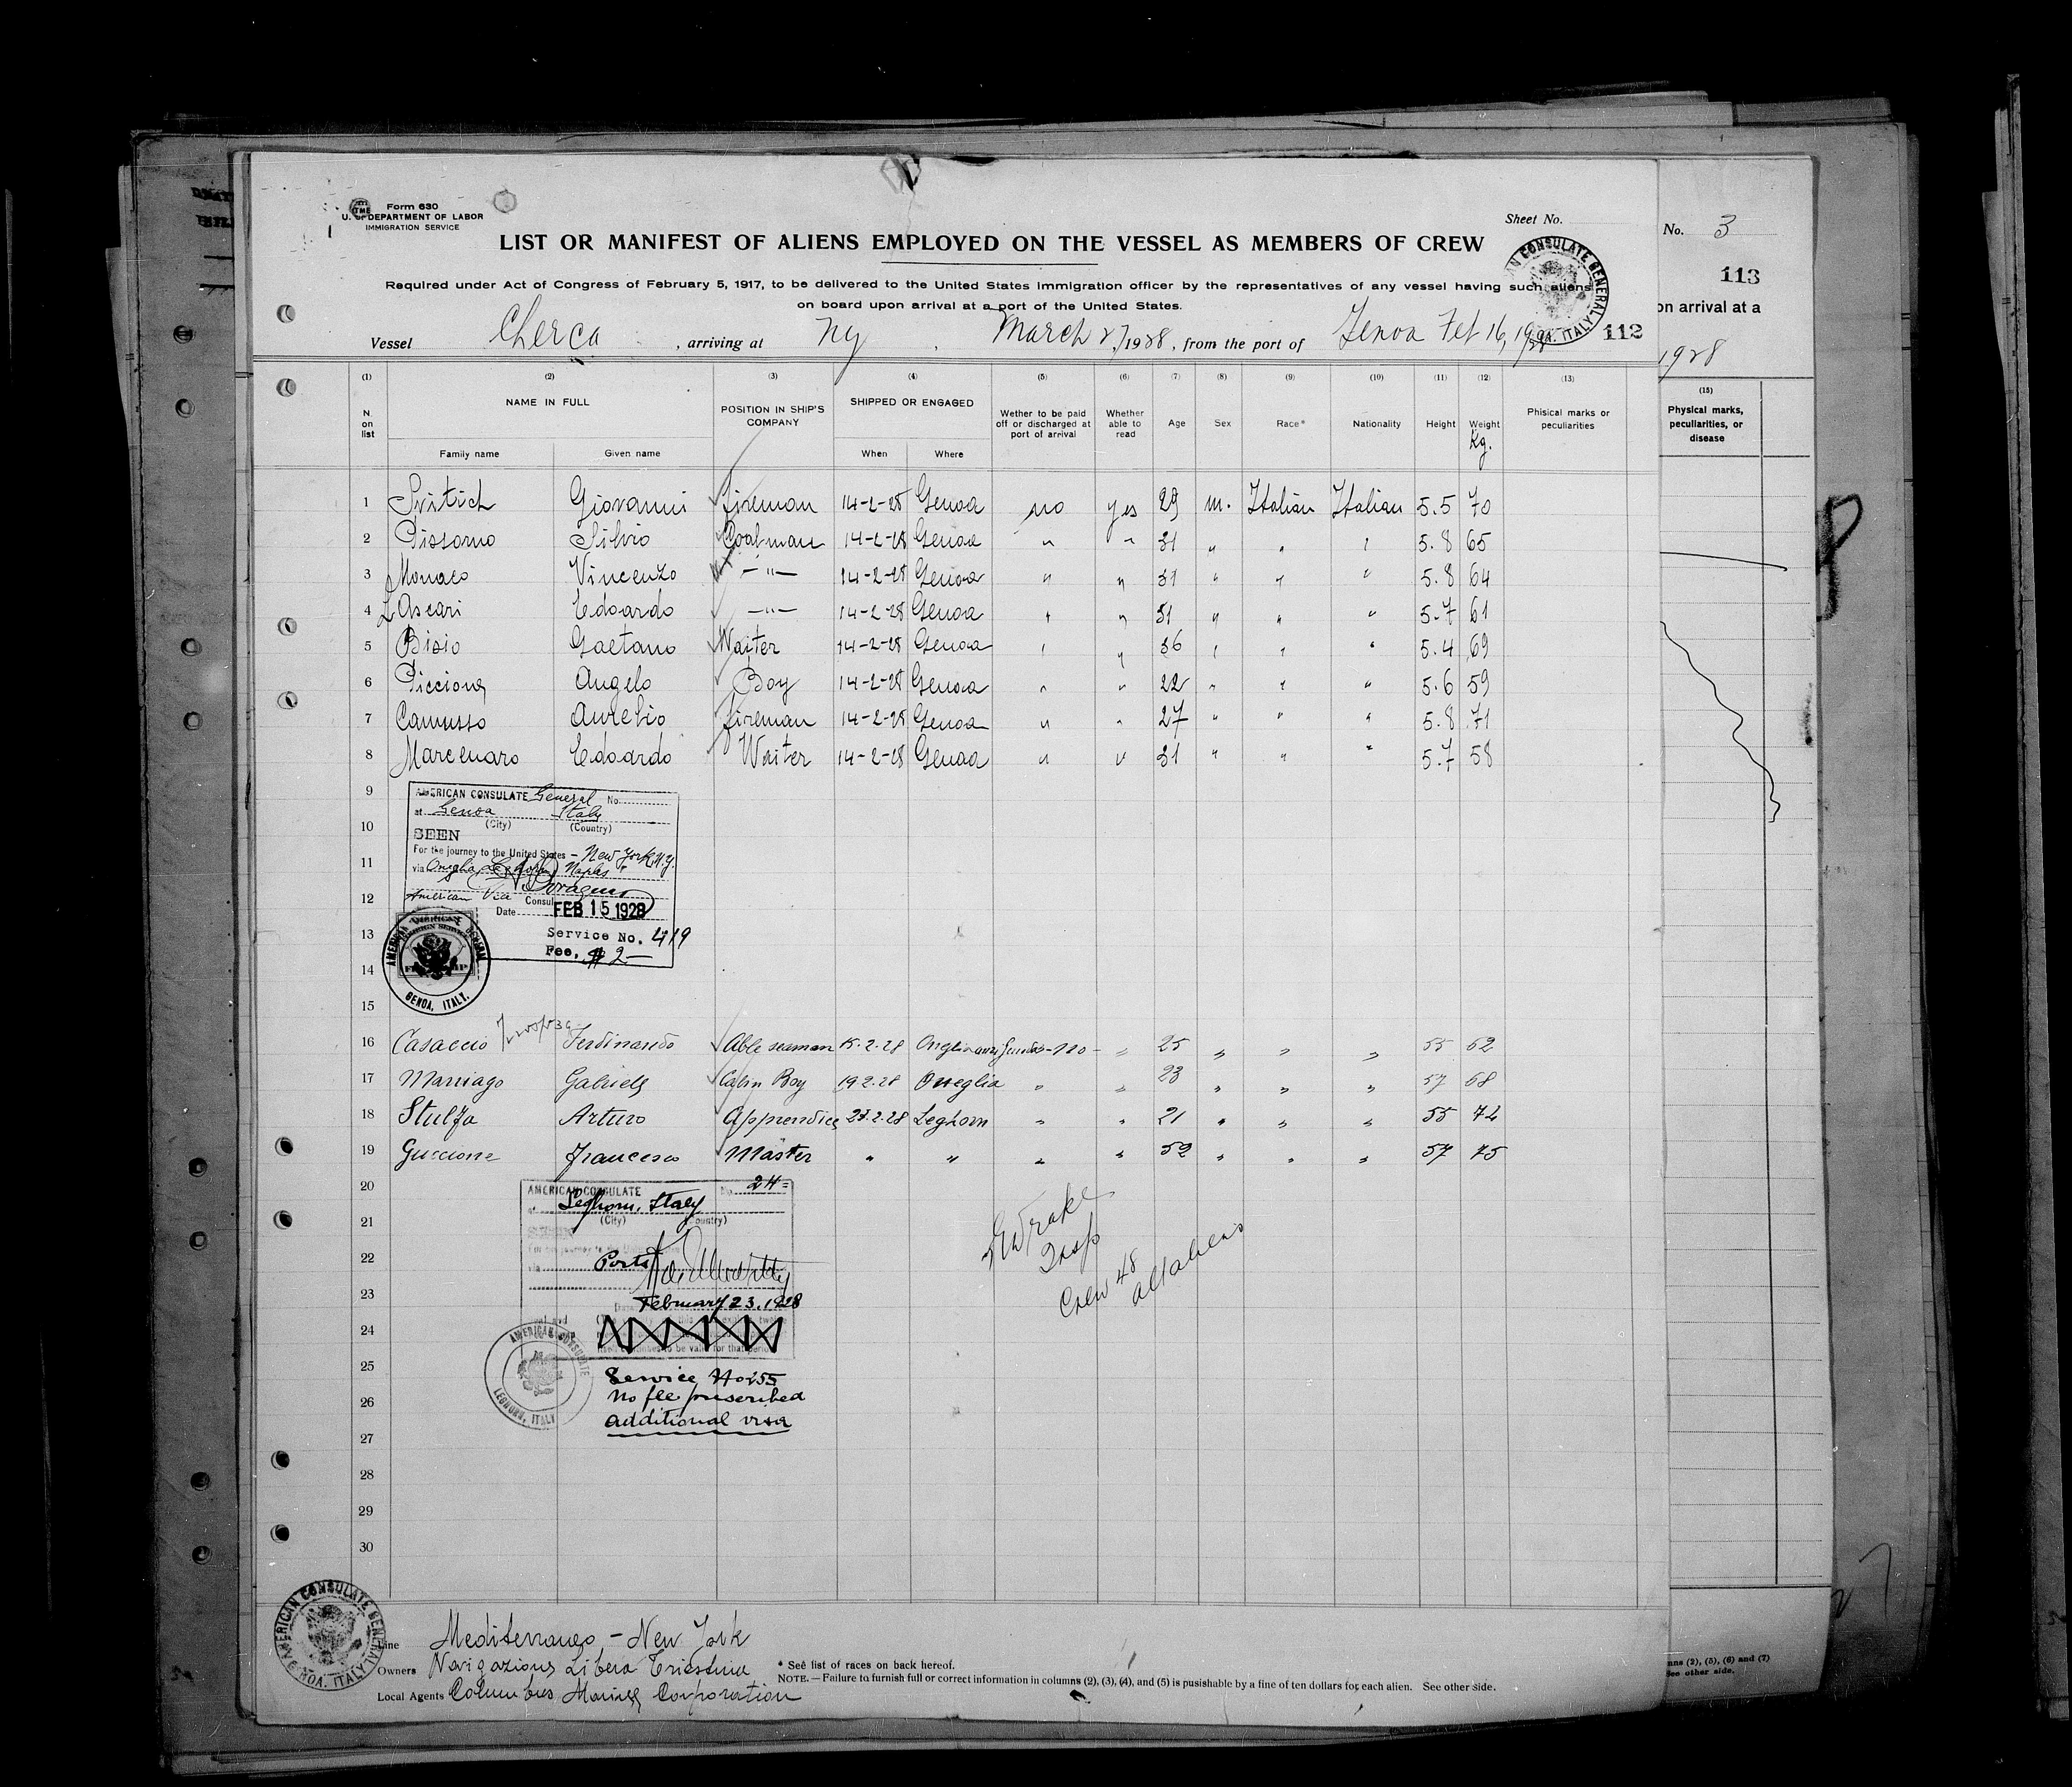 Form 630
U. S. DEPARTMENT OF LABOR
IMMIGRATION SERVICE
Sheet No.
No. 3
LIST OR MANIFEST OF ALIENS EMPLOYED ON THE VESSEL AS MEMBERS OF CREW
113
Required under Act of Congress of February 5, 1917, to be delivered to the United States Immigration officer by the representatives of any vessel having such aliens
on board upon arrival at a port of the United States.
on arrival at a
Vessel Cherca, arriving at Ny, March 2, 1928, from the port of Genoa Feb 16, 1928
112
1928
AN CONSULATE GENERAL
OA. ITALY
(1) (2) (3) (4) (5) (6) (7) (8) (9) (10) (11) (12) (13)
(15)
N. on list
NAME IN FULL
Family name
Given name
POSITION IN SHIP'S COMPANY
SHIPPED OR ENGAGED
When
Where
Wether to be paid off or discharged at port of arrival
Whether able to read
Age
Sex
Race*
Nationality
Height
Weight Kg.
Phisical marks or peculiarities
Physical marks, peculiarities, or disease
1 Giovanni Fireman 14-2-28 Genoa no yes 29 m. Italian Italian 5.5 70
2 Silvio Coalman 14-2-28 Genoa " " 31 " " " 5.8 65
3 Monaco Vincenzo -"- 14-2-28 Genoa " " 31 " " " 5.8 64
4 Ascari Edoardo -"- 14-2-28 Genoa " " 31 " " " 5.7 61
5 Bisio Gaetano Waiter 14-2-28 Genoa " " 36 " " " 5.4 69
6 Piccione Angelo Boy 14-2-28 Genoa " " 22 " " " 5.6 59
7 Camusso Aurelio Fireman 14-2-28 Genoa " " 27 " " " 5.8 71
8 Marcenaro Edoardo Waiter 14-2-28 Genoa " " 31 " " " 5.7 58
9
AMERICAN CONSULATE General No.
at Genoa Italy
(City) (Country)
10
SEEN
For the journey to the United States - New York, N.Y.
11
via Oneglia Leghorn Naples
12
American Vice Consul
Date FEB 15 1928
13
Service No. 419
Fee. $ 2—
14
AMERICAN CONSULATE GENERAL
GENOA, ITALY.
15
16 Casaccio Ferdinando Able seaman 15.2.28 Oneglia no " 25 " " " 55 62
17 Marsiago Gabriele Cabin Boy 19 2.28 Oneglia " " 23 " " " 57 68
18 Stulfa Arturo Apprendice 23.2.28 Leghorn " " 21 " " " 55 72
19 Guccione Francesco Master " " " " 52 " " " 57 75
20
AMERICAN CONSULATE No. 24=
at Leghorn, Italy
(City) (Country)
21
22
Ports
23
February 23, 1928
24
25
Service No 255
No fee prescribed
26
additional visa
AMERICAN CONSULATE
LEGHORN, ITALY
Insp
Crew 48
all aliens
27
28
29
30
AMERICAN CONSULATE GENERAL
GENOA. ITALY
Line Mediterraneo - New York
Owners Navigazione Libera Triestina
* See list of races on back hereof.
Local Agents Columbus Marine Corporation
NOTE. — Failure to furnish full or correct information in columns (2), (3), (4), and (5) is pusishable by a fine of ten dollars for each alien. See other side.
ns (2), (5), (6) and (7)
See other side.